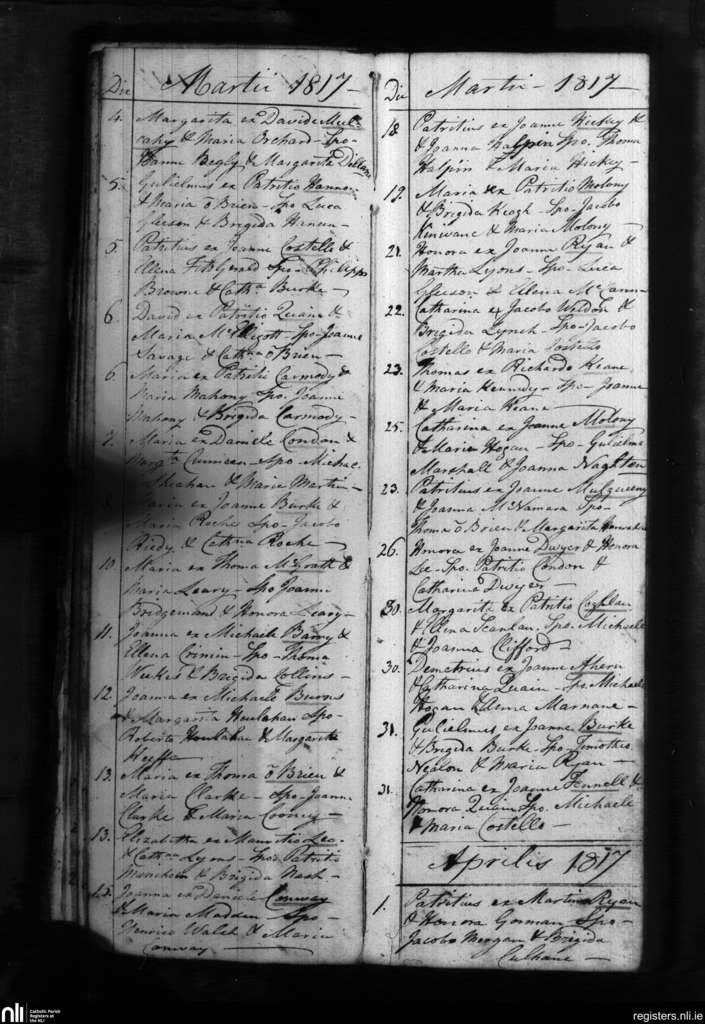 Die Martii 1817
4. Margarita ex Davide Mul-
cahy & Maria Orchard - Spo-
Begly & Margarita Dillon
5. Gulielmus ex Patritio
& Maria ō Brien - Spo Luca
Gleeson & Brigida
5. Patritius ex Joanne Costello &
Ellena FitzGerald Spo - Philippo
Browne & Cathª Burke -
6. David ex Patritio Quain &
Maria McEllicott - Spo - Joanne
Savage & Cathna ō Brien -
6. Maria ex Patritii Carmody &
Maria Mahony Spo. Joanne
Mahony & Brigida Carmody -
7. Maria ex Daniele Condon &
Cunneen - Spo Michae.
Sheehan & Marie Martin -
Maria ex Joanne Burke &
Maria Roche Spo - Jacobo
Riedy & Cathna Roche -
10. Maria ex Thoma McGrath &
Maria Leary - Spo Joanne
Bridgeman & Honora Leary -
11. Joanna ex Michaele Barry &
Ellena Crimin - Spo - Thoma
Weekes & Brigida Collins -
12. Joanna ex Michaele Burns
& Margarita Houlahan Spo -
Roberto Houlahan & Margarita
13. Maria ex Thoma ō Brien &
Maria Clarke - Spo - Joanne
Clarke & Maria Cooney
13. Elizabetha ex Mauritio Lee.
& Cathna Lyons - Spo - Patritio
& Brigida Nash -
Joanna ex Daniele Conway
& Maria Madden Spo -
Henrico Walsh & Maria
Conway -
Die Martii - 1817
18. Patritius ex Joanne Hickey &
& Joanna Halpin Spo. Thoma
Halpin & Maria Hickey -
19. Maria ex Patritio Molony
& Brigida Keogh - Spo - Jacobo
Kinivane & Maria Molony -
21. Honora ex Joanne Ryan &
Martha Lyons - Spo - Luca
Gleeson & Elena McCann
22. Catharina ex Jacobo Weldon &
Brigida Lynch - Spo - Jacobo
Costello & Maria Costello
23. Thomas ex Richardo Keane
& Maria Kennedy - Spo - Joanne
& Maria Keane -
25. Catharina ex Joanne Molony
& Maria Hogan - Spo - Gulielmo
Marshall & Joanna Naghton
23. Patritius ex Joanne Mulqueeny
& Joanna McNamara Spo -
Thoma ō Brien & Margarita
26. Honora ex Joanne Dwyer & Honora
Lee - Spo. Patritio Condon &
Catharina Dwyer -
30. Margarita ex Patritio Coghlan
& Elena Scanlan - Spo. Michaele
& Joanna Clifford -
30. Demetrius ex Joanne Ahern
& Catharina Quain - Spo. Michaele
Hogan & Lena Marnane -
31. Gulielmus ex Joanne Burke
& Brigida Burke - Spo - Timotheo
Nealon & Maria Ryan -
31. Catharina ex Joanne Fennell &
Honora Quain Spo. Michaele
& Maria Costello -
Aprilis 1817
1. Patritius ex Martino Ryan
& Honora Gorman Spo -
Jacobo Morgan & Brigida
Culhane -
nli
Catholic Parish
Registers at
the NLI
registers.nli.ie